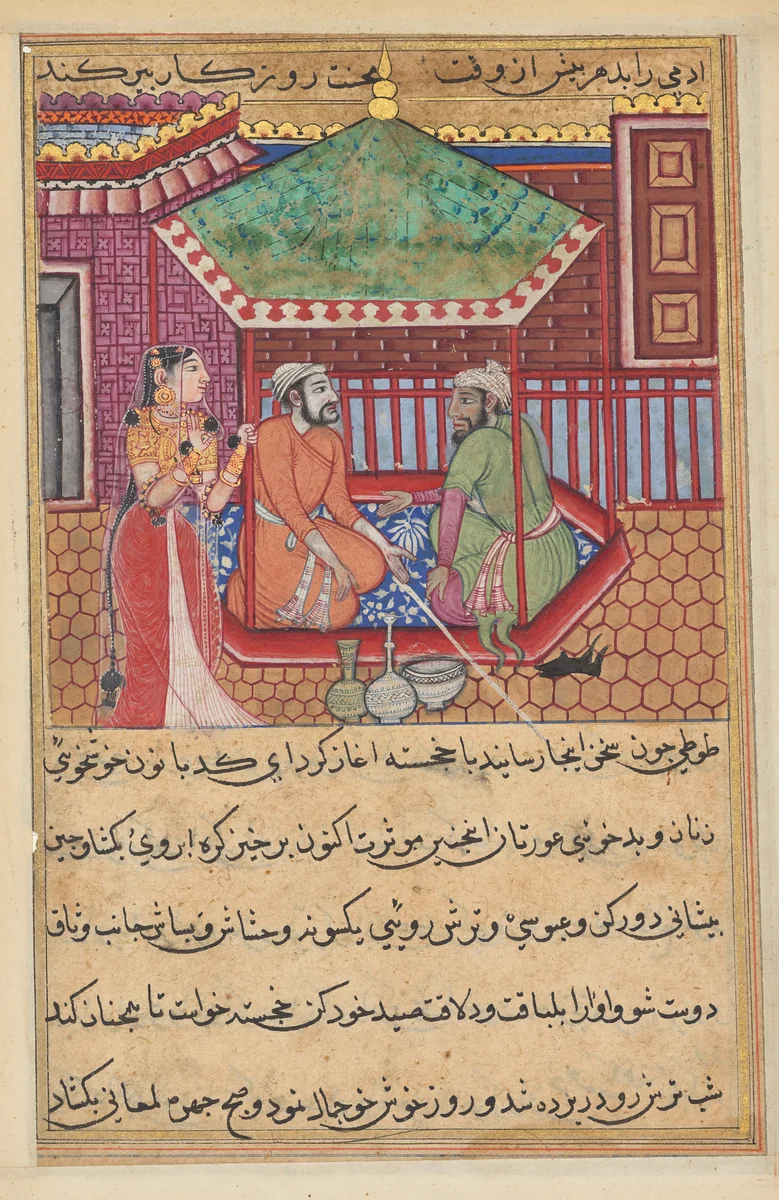 ادمي را بدهر بيش از وقت محنت روزكار پير كند
طوطي چون سخن اينجا رسانيد با خجسته اغاز كرد اي كدبانو خوشخوئي
زنان و بدخوئي عورتان اينچنين موثرست اكنون برخيز كره ابروي بكشا و چين
پيشاني دور كن و عبوسي و ترش روئي يكسو نه و حشاش و بشاش جانب وثاق
دوست شو و او را بلباقت و دلاقت صيد خود كن خجسته خواست تا همچنان كند
شب ترش رو در پرده شد و روز خوش خو جمال نمود و صبح چهره لمعاني بكشاد